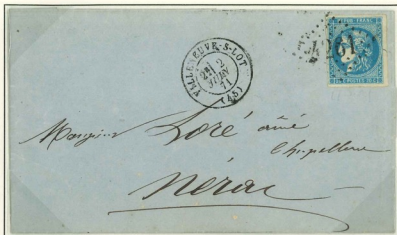 VILLENEUVE-S-LOT
2E
2
JUIN
71
(45)
4261
POSTES
Loré aîné
Chapellerie
Nérac